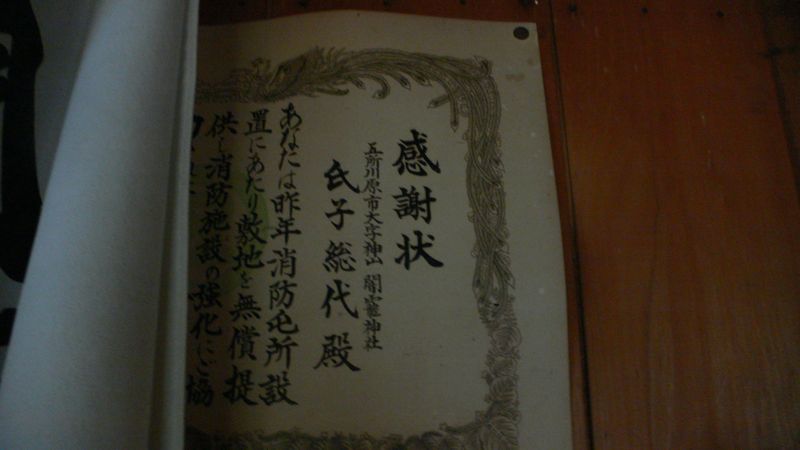 感謝状
五所川原市大字神山 闇龗神社
氏子総代 殿
あなたは昨年消防屯所設
置にあたり敷地を無償提
供し消防施設の強化にご協
力